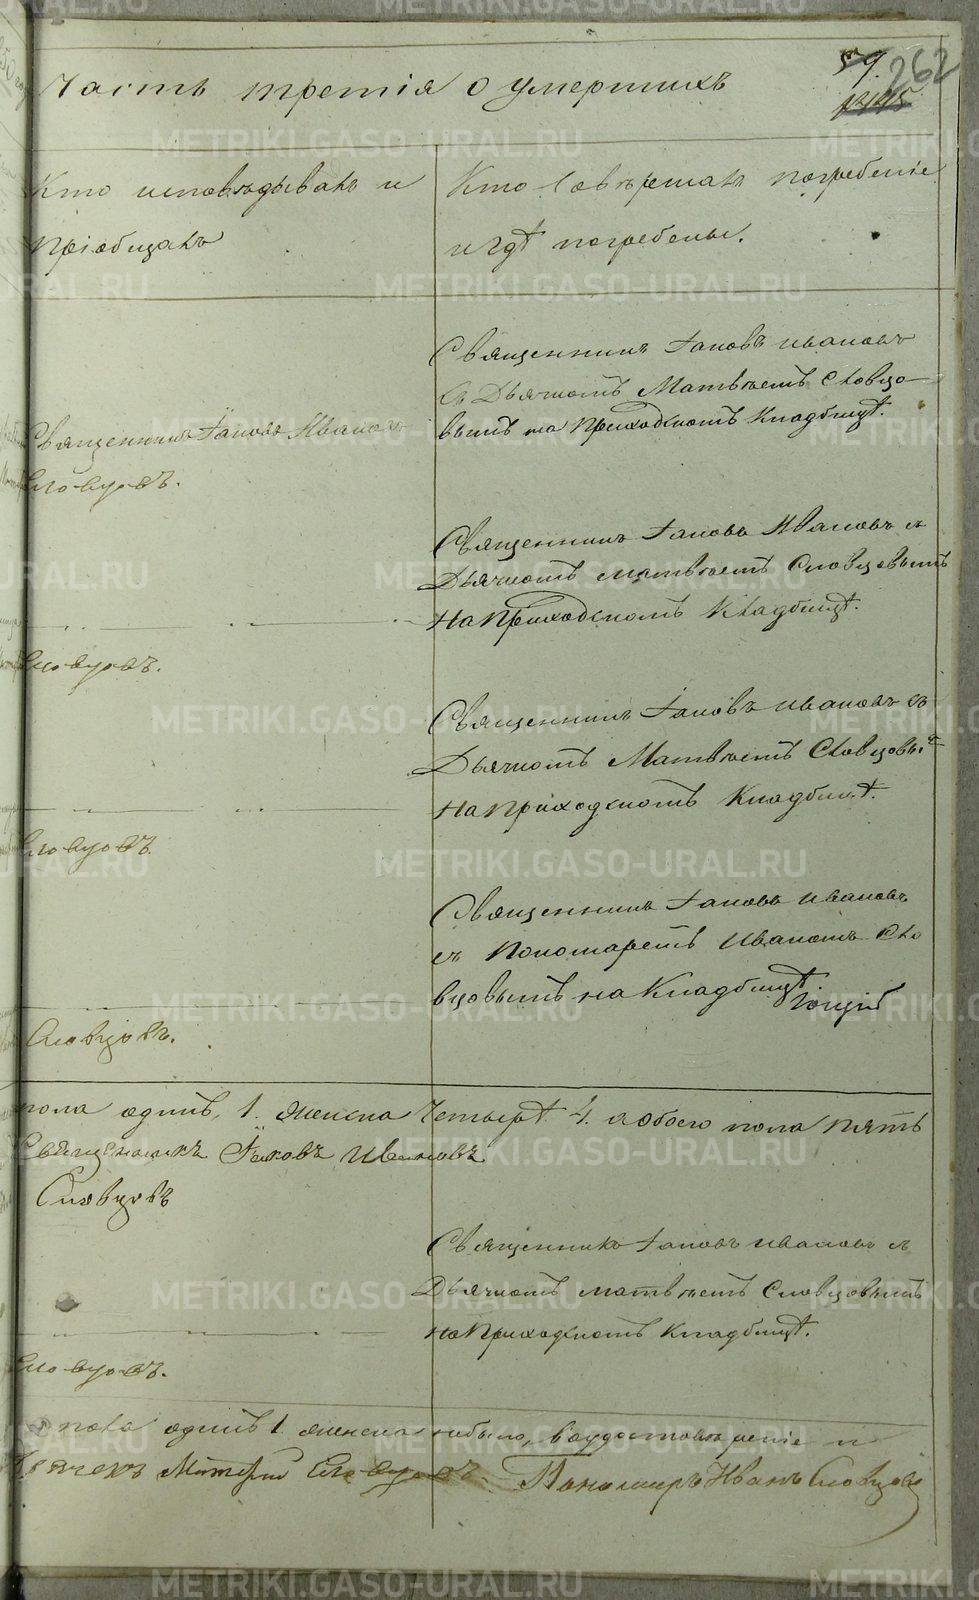 Часть третія о умершихъ
59.
262
Кто исповѣдывалъ и
пріобщалъ
Кто Совершалъ погребеніе
и гдѣ погребены.
Священникъ Іаковъ Ивановъ
Словцовъ.
Священникъ Іаковъ Ивановъ
съ Дьячкомъ Матвѣемъ Словцо-
вымъ на Приходскомъ Кладбищѣ.
Словцовъ.
Священникъ Іаковъ Ивановъ съ
Дьячкомъ Матвѣемъ Словцовымъ
На Приходскомъ Кладбищѣ.
Словцовъ.
Священникъ Іаковъ Ивановъ съ
Дьячкомъ Матвѣемъ Словцовы
на приходскомъ Кладбищѣ.
Словцовъ.
Священникъ Іаковъ Ивановъ
съ Пономаремъ Иваномъ Сло
вцовымъ на Кладбищѣ
пола одинъ, 1. женска Четыре 4. а обоего пола пять
Священникъ Іаковъ Ивановъ
Словцовъ
Словцовъ.
Священникъ Іаковъ Ивановъ съ
Дьячкомъ Матвѣемъ Словцовымъ
на Приходскомъ Кладбищѣ.
пола одинъ 1 женска небыло,
Дьячекъ Матвѣй Словцовъ. Пономарь Иванъ Словцовъ
METRIKI.GASO-URAL.RU